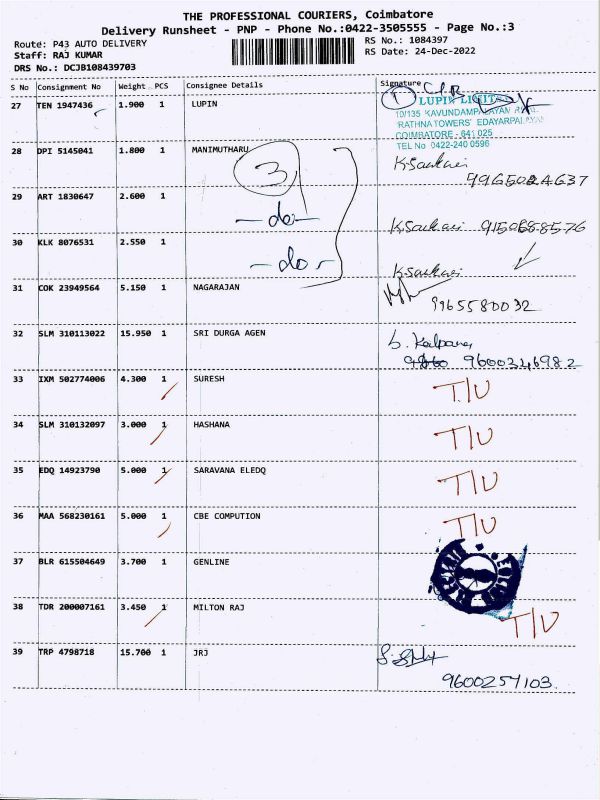 THE PROFESSIONAL COURIERS, Coimbatore
Delivery Runsheet - PNP - Phone No.:0422-3505555 - Page No.:3
Route: P43 AUTO DELIVERY RS No.: 1084397
Staff: RAJ KUMAR RS Date: 24-Dec-2022
DRS No.: DCJB108439703
S No Consignment No Weight PCS Consignee Details Signature
27 TEN 1947436 1.900 1 LUPIN
1 LUPIN LIMITED
10/135 KAVUNDAMPALAYAM
RATHNA TOWERS' EDAYARPALAYAM
COIMBATORE - 641 025
TEL No 0422-240 0596
28 DPI 5145041 1.800 1 MANIMUTHARU
3
9965024637
29 ART 1830647 2.600 1
-do-
30 KLK 8076531 2.550 1
-do-
31 COK 23949564 5.150 1 NAGARAJAN
9965580032
32 SLM 310113022 15.950 1 SRI DURGA AGEN
9600346982
33 IXM 502774006 4.300 1 SURESH T/U
34 SLM 310132097 3.000 1 HASHANA T/U
35 EDQ 14923790 5.000 1 SARAVANA ELEDQ T/U
36 MAA 568230161 5.000 1 CBE COMPUTION T/U
37 BLR 615504649 3.700 1 GENLINE
38 TDR 200007161 3.450 1 MILTON RAJ T/U
39 TRP 4798718 15.700 1 JRJ
9600257103